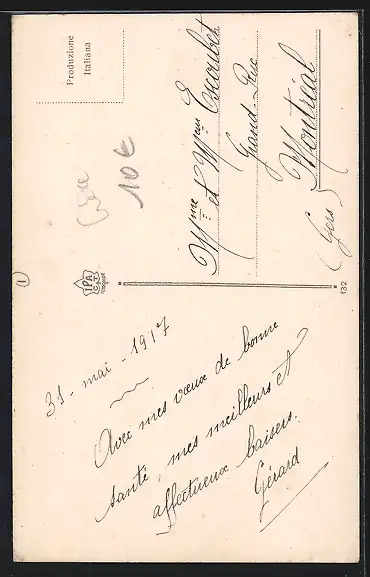 Produzione
Italiana
10€
Mme et Mlle Escoubet
Grand-Rue
Montréal
(Gers)
1
IPA
CT
132
31 - mai - 1917
Avec mes vœux de bonne
santé, mes meilleurs et
affectueux baisers.
Gérard